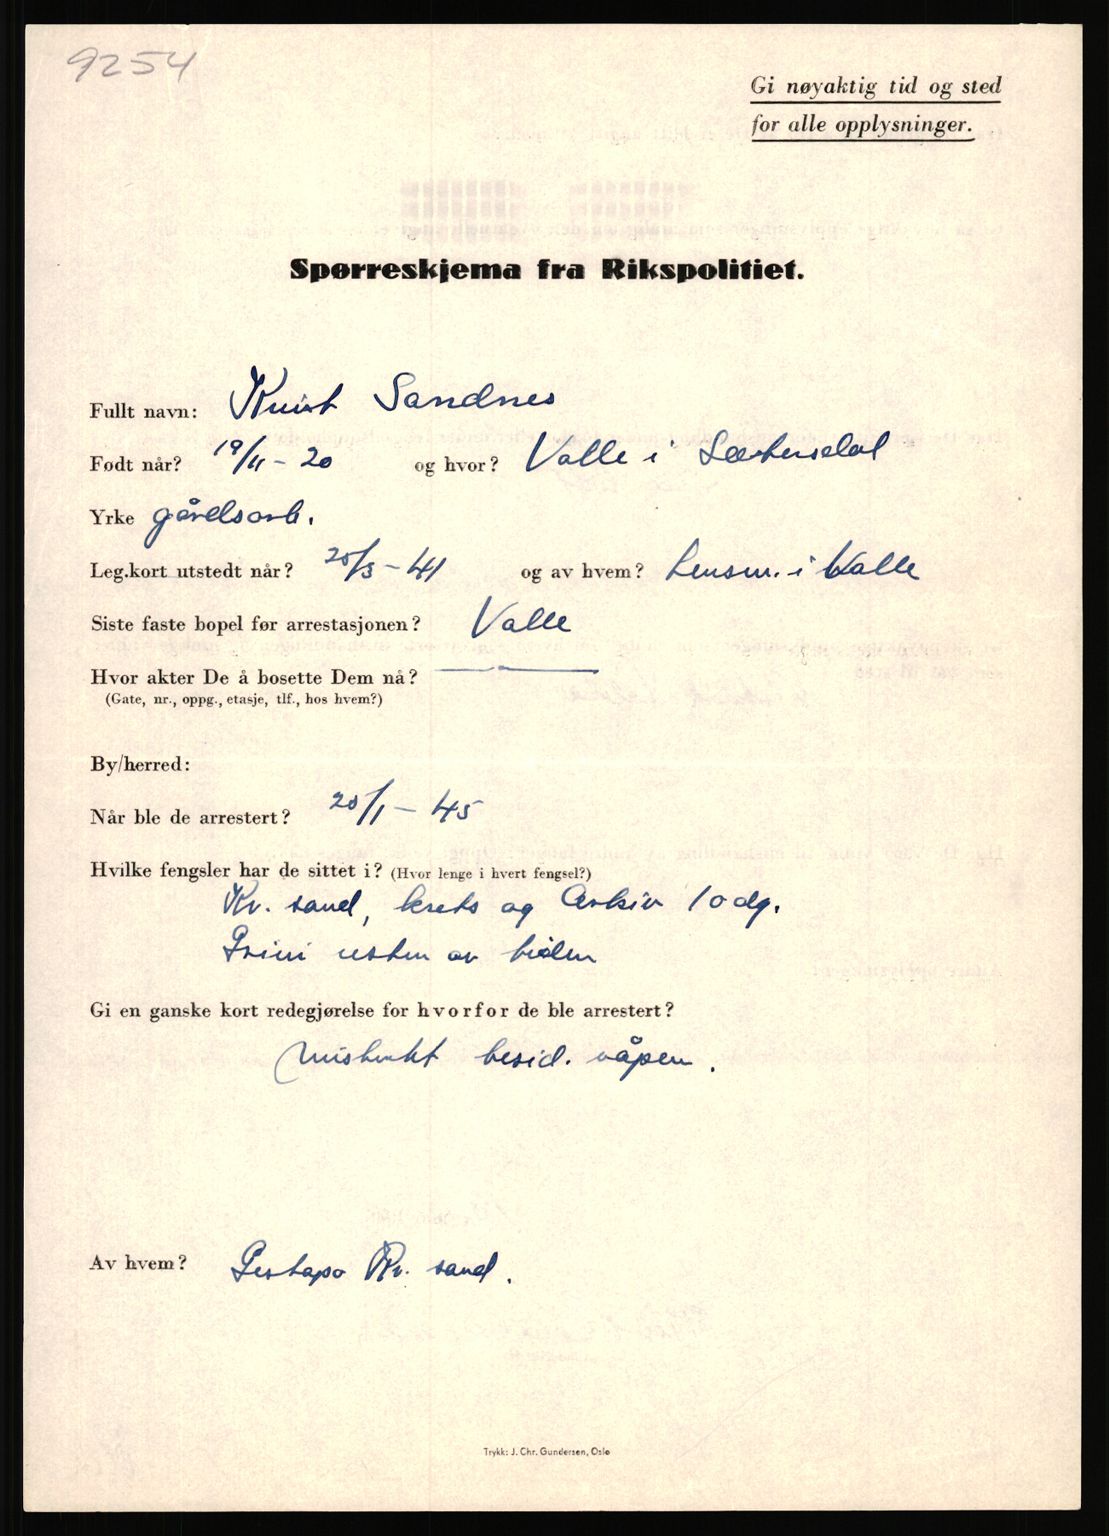 9254
Gi nøyaktig tid og sted
for alle opplysninger.
Spørreskjema fra Rikspolitiet.
Fullt navn: Knut Sandnes
Født når? 19/11 - 20 og hvor? Valle i Sætersdal
Yrke gårdsarb.
Leg.kort utstedt når? 25/3 - 41 og av hvem? Lensm. i Valle
Siste faste bopel før arrestasjonen? Valle
Hvor akter De å bosette Dem nå? — " —
(Gate, nr., oppg., etasje, tlf., hos hvem?)
By/herred:
Når ble de arrestert? 20/1 - 45
Hvilke fengsler har de sittet i? (Hvor lenge i hvert fengsel?)
Kr. sand, krets og Arkiv 10 dg.
Grini resten av tiden
Gi en ganske kort redegjørelse for hvorfor de ble arrestert?
Mistenkt besid. våpen.
Av hvem? Gestapo Kr. sand.
Trykk: J. Chr. Gundersen, Oslo